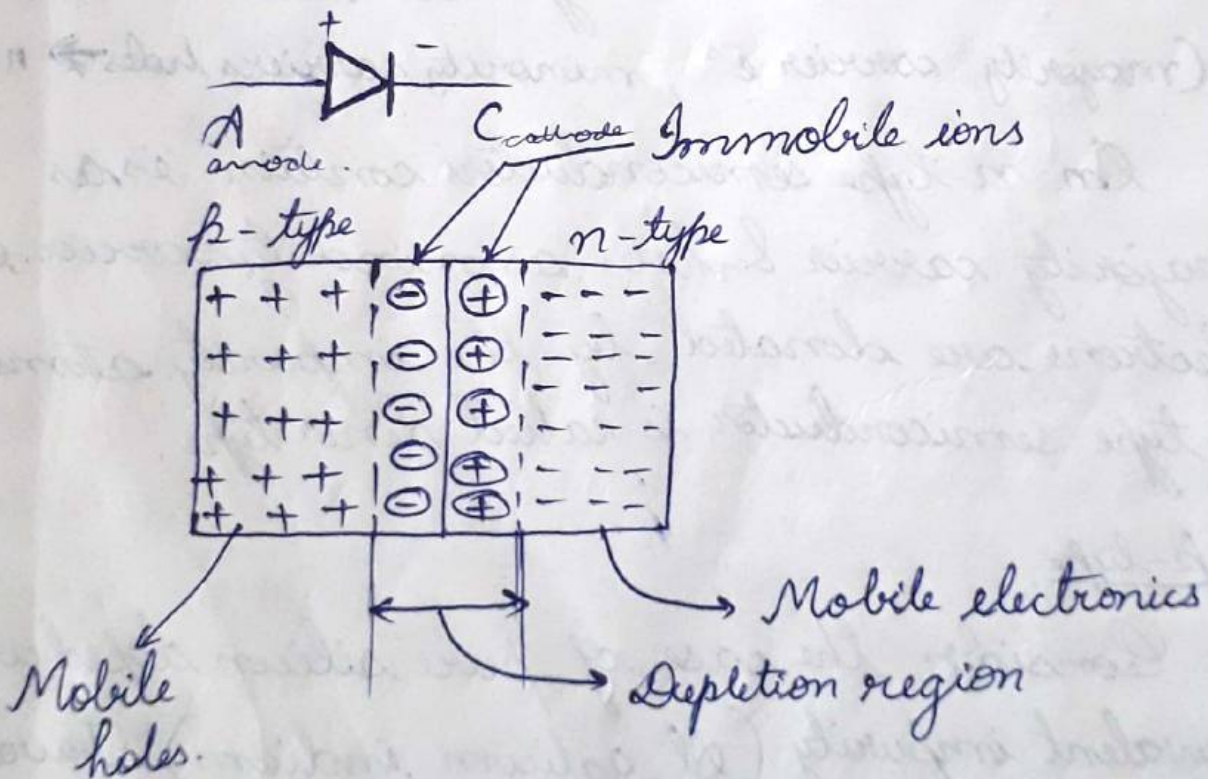 + -
A C cathode Immobile ions
anode.
p-type n-type
+ + + ⊖ ⊕ - - -
+ + + ⊖ ⊕ - - -
+ + + ⊖ ⊕ - - -
+ + + ⊖ ⊕ - - -
+ + + ⊖ ⊕ - - -
Mobile electronics
Depletion region
Mobile
holes.